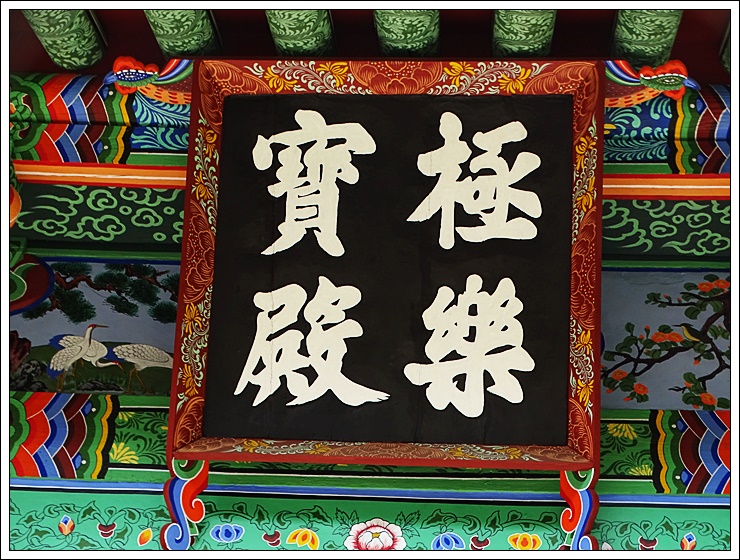 極樂
寶殿